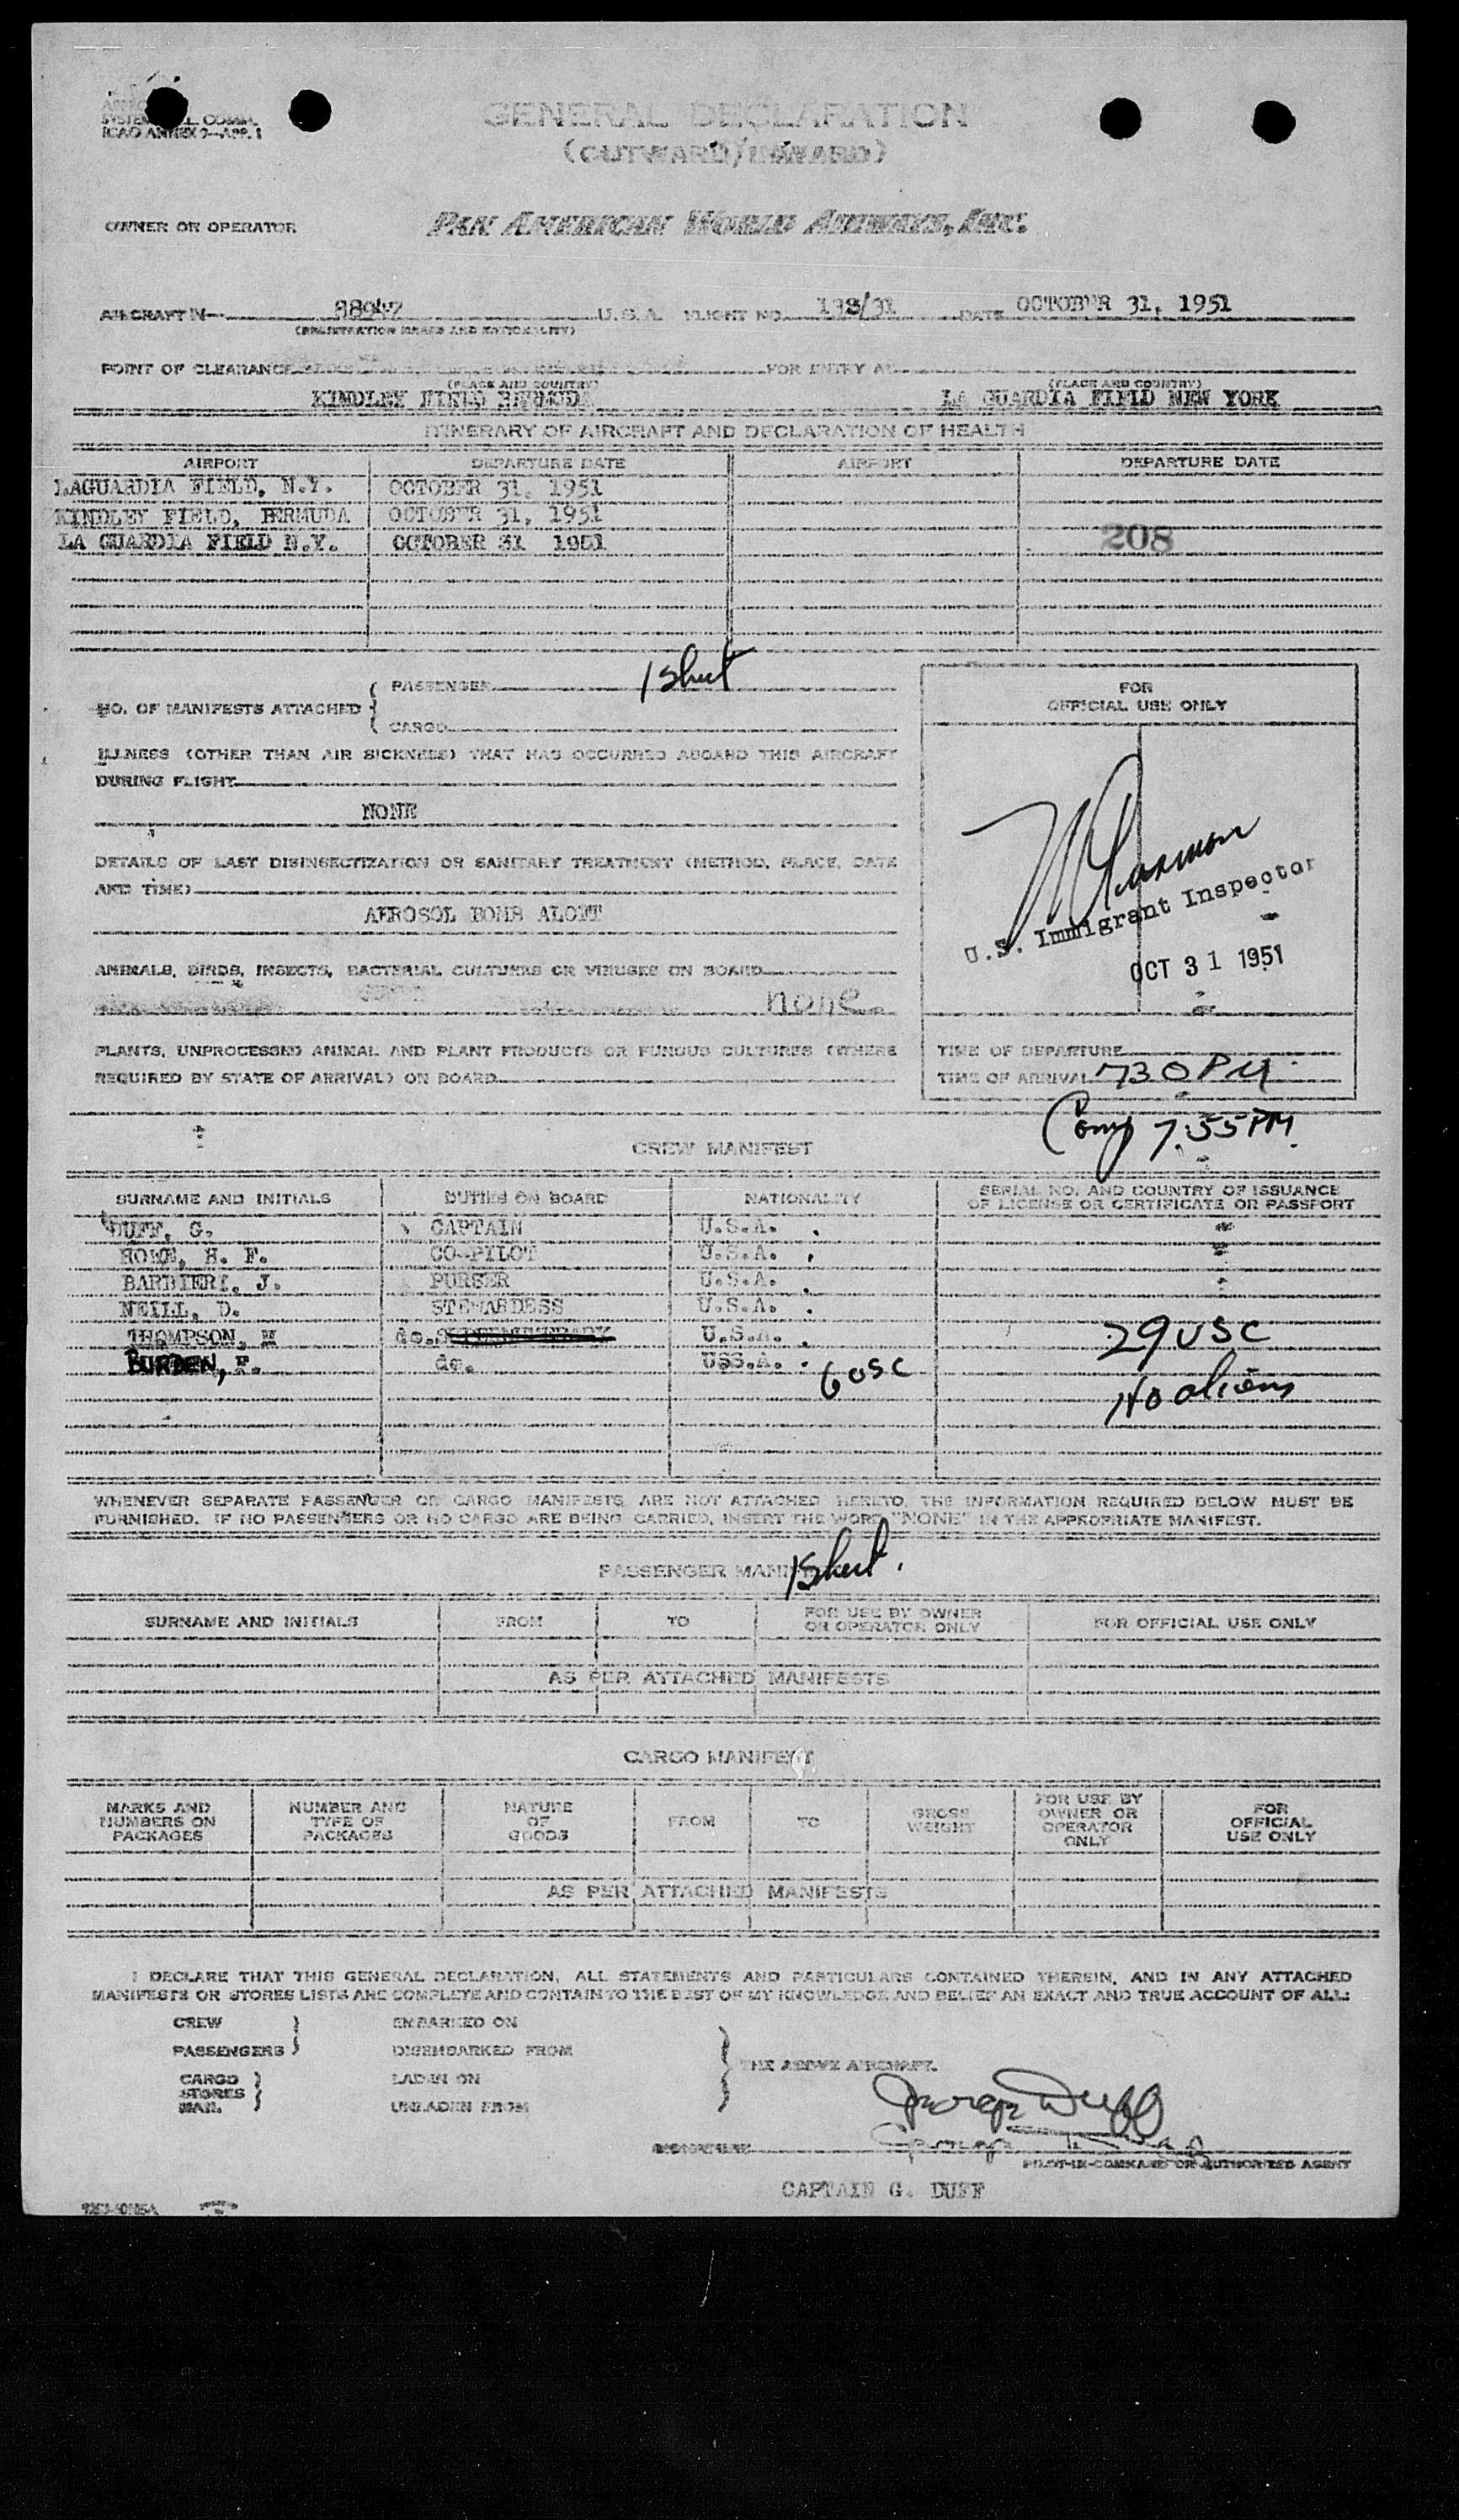 ICAO ANNEX 9—APP. 1
GENERAL DECLARATION
(OUTWARD/INWARD)
OWNER OR OPERATOR PAN AMERICAN WORLD AIRWAYS, INC.
AIRCRAFT N— U.S.A. FLIGHT NO. DATE OCTOBER 31, 1951
(REGISTRATION MARKS AND NATIONALITY)
POINT OF CLEARANCE FOR ENTRY AT
(PLACE AND COUNTRY) (PLACE AND COUNTRY)
KINDLEY FIELD BERMUDA LA GUARDIA FIELD NEW YORK
ITINERARY OF AIRCRAFT AND DECLARATION OF HEALTH
AIRPORT DEPARTURE DATE AIRPORT DEPARTURE DATE
LAGUARDIA FIELD, N.Y. OCTOBER 31, 1951
KINDLEY FIELD, BERMUDA OCTOBER 31, 1951
LA GUARDIA FIELD N.Y. OCTOBER 31 1951 208
NO. OF MANIFESTS ATTACHED { PASSENGER 1 Sheet
CARGO
FOR
OFFICIAL USE ONLY
ILLNESS (OTHER THAN AIR SICKNESS) THAT HAS OCCURRED ABOARD THIS AIRCRAFT
DURING FLIGHT
NONE
DETAILS OF LAST DISINSECTIZATION OR SANITARY TREATMENT (METHOD, PLACE, DATE
AND TIME)
AEROSOL BOMB ALOFT
U.S. Immigrant Inspector
OCT 31 1951
ANIMALS, BIRDS, INSECTS, BACTERIAL CULTURES OR VIRUSES ON BOARD
none
PLANTS, UNPROCESSED ANIMAL AND PLANT PRODUCTS OR FUNGUS CULTURES (WHERE
REQUIRED BY STATE OF ARRIVAL) ON BOARD
TIME OF DEPARTURE
TIME OF ARRIVAL 730 PM
Comp 7.55 PM
CREW MANIFEST
SURNAME AND INITIALS DUTIES ON BOARD NATIONALITY SERIAL NO. AND COUNTRY OF ISSUANCE
OF LICENSE OR CERTIFICATE OR PASSPORT
DUFF, G. CAPTAIN U.S.A.
H. F. CO-PILOT U.S.A.
BARBIERI, J. PURSER U.S.A.
NEILL, D. STEWARDESS U.S.A.
THOMPSON, M do. U.S.A. 29 USC
BURDEN, do. USS.A. 6 USC
No aliens
WHENEVER SEPARATE PASSENGER OR CARGO MANIFESTS ARE NOT ATTACHED HERETO, THE INFORMATION REQUIRED BELOW MUST BE
FURNISHED. IF NO PASSENGERS OR NO CARGO ARE BEING CARRIED, INSERT THE WORD "NONE" IN THE APPROPRIATE MANIFEST.
PASSENGER MANIFEST 1 Sheet.
SURNAME AND INITIALS FROM TO FOR USE BY OWNER
OR OPERATOR ONLY FOR OFFICIAL USE ONLY
AS PER ATTACHED MANIFESTS
CARGO MANIFEST
MARKS AND
NUMBERS ON
PACKAGES
NUMBER AND
TYPE OF
PACKAGES
NATURE
OF
GOODS
FROM
TO
GROSS
WEIGHT
FOR USE BY
OWNER OR
OPERATOR
ONLY
FOR
OFFICIAL
USE ONLY
AS PER ATTACHED MANIFESTS
I DECLARE THAT THIS GENERAL DECLARATION, ALL STATEMENTS AND PARTICULARS CONTAINED THEREIN, AND IN ANY ATTACHED
MANIFESTS OR STORES LISTS ARE COMPLETE AND CONTAIN TO THE BEST OF MY KNOWLEDGE AND BELIEF AN EXACT AND TRUE ACCOUNT OF ALL:
CREW EMBARKED ON
PASSENGERS DISEMBARKED FROM
THE ABOVE AIRCRAFT.
CARGO LADEN ON
STORES
MAIL UNLADEN FROM
George Duff
SIGNATURE
PILOT-IN-COMMAND OR AUTHORIZED AGENT
CAPTAIN G. DUFF